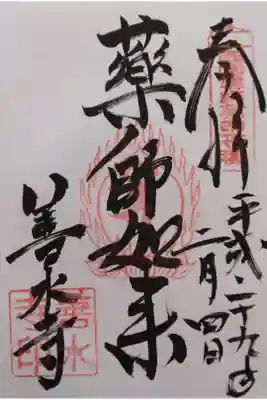 奉拝
平成二十九年
二月四日
藥師如来
善水寺
善水寺印